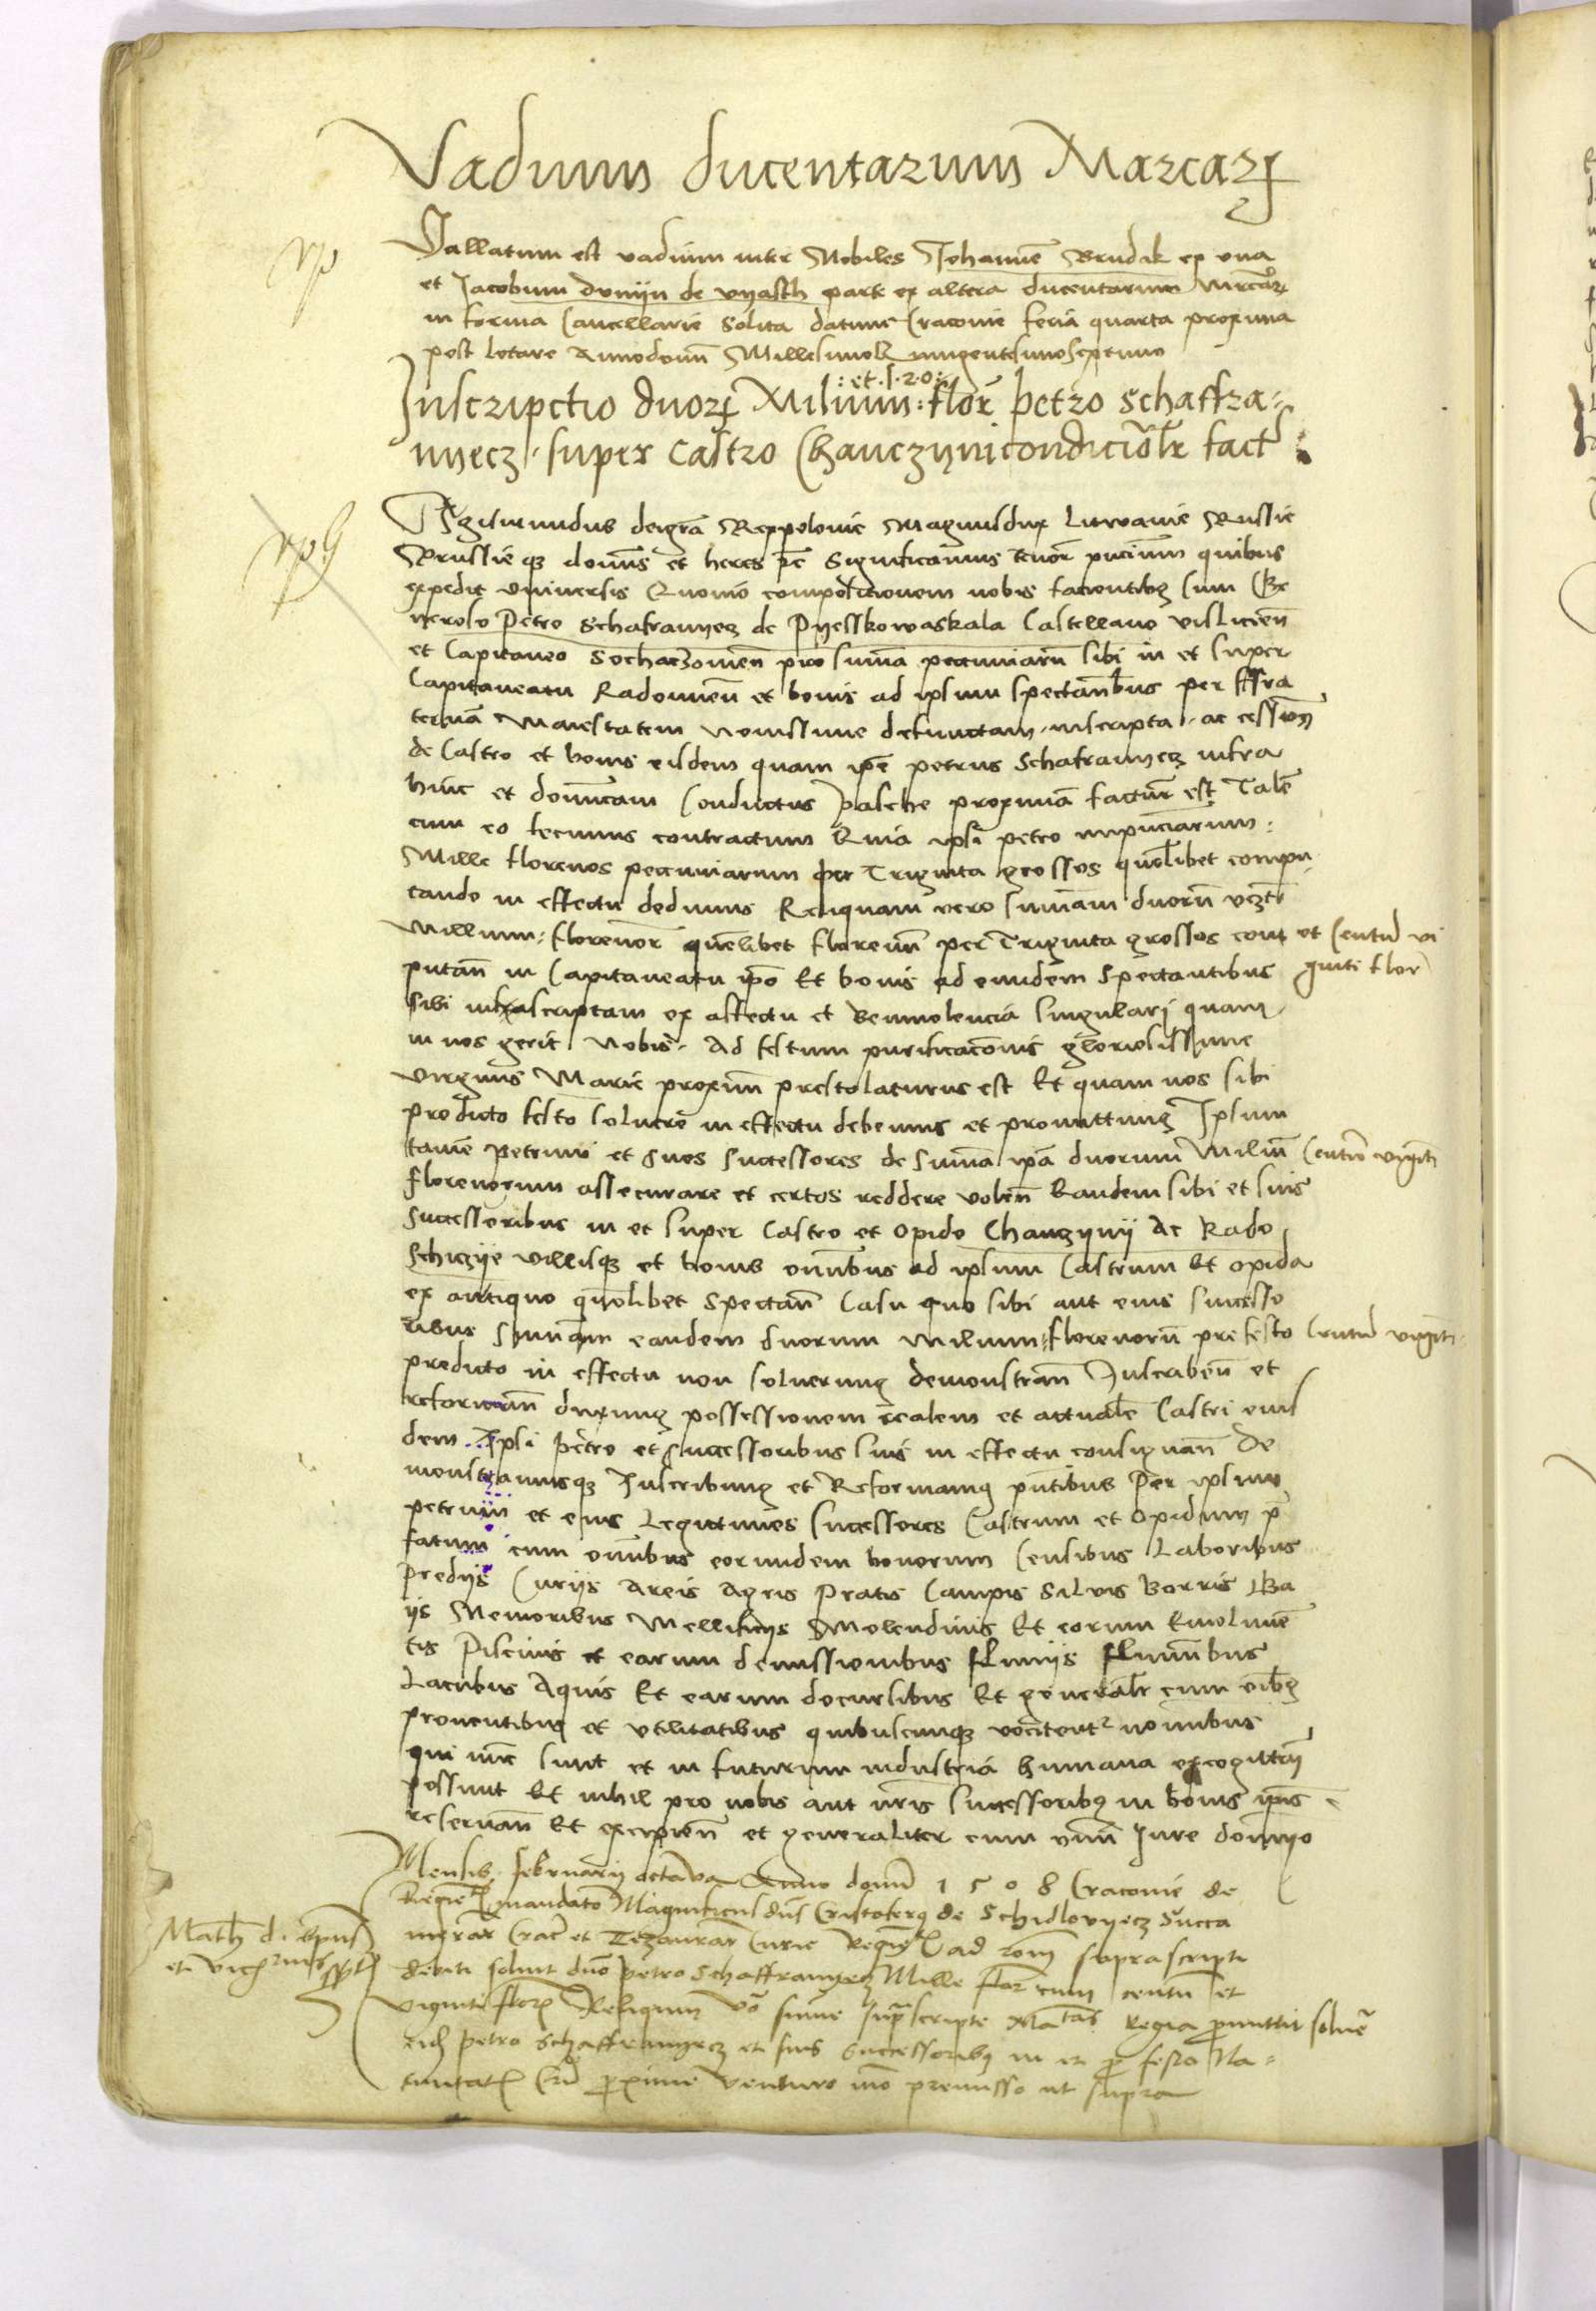 Vadium ducentarum Marcarꝝ
Vallatum est vadium inter Nobiles Johannē Brudak ex vna
et Jacobum dunyn de vyasth parte ex altera ducentarum mrcarꝝ
in forma Cancellarie solita datum Cracouie feria quarta proxima
post letare Annodomī Millesimoq̄uingentesimoseptimo
: et .120 :
Inscripctio duorꝝ Milium : flor̄ petro Schaffra=
nyecz . super Castro Chanczyni condicōlr fact
Sigismundus deigrā Rexpolonie Magnusdux Litwanie Russie
Prussieqꝫ domīs et heres ꝛc Significamus tenor̄ pn̄cium quibus
expedit vniuersis Quomō composicionem nobis facientibꝰ cum Ge
neroso Petro Schafranyecz de Pyesskowaskala Castellano vislicien̄
et Capitaneo Sochaczowien̄ pro sum̄a pecuniarū sibi in et super
Capitaneatu Radomien̄ et bonis ad ipsum spectan̄bus per ffra
ternā Maiestatem nouissime defunctam . inscripta . ac cession̄
de Castro et bonis eisdem quam ip̄e petrus Schafranyecz infra
hinc et domīcam Conductus pasche proximā factur̄ est Talē
cum eo fecimus contractum Quia ipsi petro
Mille florenos pecuniarum per Triginta grossos quēlibet compu
tando in effectu dedimus Reliquam vero sum̄am duorū
Millium : florenor̄ quēlibet florenū per Triginta grossos com et Centū vi
putan̄ in Capitaneatu ip̄o Et bonis ad eundem Spectantibus ginti flor̄
sibi infrascriptam ex affectu et Beniuolencia singulari quam
in nos gerit nobis . Ad festum purificacōnis gloriosissime
virginis Marie proxim̄ prestolaturus est Et quam nos sibi
predicto festo soluere in effectu debemus et promittimꝰ Ipsum
tamē Petrum et suos successores de sum̄a ip̄a duorum Miliū Centū viginti
florenorum assecurare et certos reddere volen̄ Eandem sibi et suis
Successoribus in et super Castro et Opido Chanczynij Ac Rado
Schiczije villisqꝫ et bonis omnībus ad ipsum Castrum Et Opida
ex antiquo quōlibet Spectan̄ Casu quo sibi aut eius successo
ribus Sum̄am eandem duorum Milium : florenorū pro festo Centū viginti
predicto in effectu non soluerimꝰ demonstran̄ Inscriben̄ et
reformān duximꝰ possessionem realem et actualē Castri eius
dem Ipsi Petro et successoribus suis in effectu consignan̄ De
monstramusqꝫ Inscribimꝰ et Reformamꝰ pn̄tibus Per ipsum
petrum et eius Legittimos successores Castrum et Opidum p̄
fatum cum omnībus eorundem bonorum Censibus Laboribus
Predijs Curijs Areis Agris Pratis Campis Siluis Borris Ga
ijs Nemoribus Mellificijs Molendinis Et eorum Emolumē
tis Piscinis et earum demissionibus fluuijs fluminībus
Lacubus Aquis Et earum decursibus Et generalr̄ cum om̄ibꝰ
prouentibus et vtilitatibus quibuscunqꝫ vocitent᷑ nominibus
qui nūc sunt et in futurum industria humana excogittarj
possunt Et nihil pro nobis aut nr̄is successoribꝰ in bonis ip̄is
reseruan̄ Et excipien̄ et generaliter cum omnī Jure domījo
Mensis februarij octaua Anno domī 1508 Cracouie de
Regie mandato Magnificus dn̄s Cristoferꝰ de Schidlovyecz Succa
merar̄ Crac̄ et Tezaurar̄ Curie Regie ad rōnē suprascripti
debiti soluit dn̄o petro Schaffranyecz Mille flor̄ cum centū et
viginti flor̄ Reliquum vō sum̄e supͣscripte Matas Regia promittit soluē
eidē Petro Schaffranyecz et suis Successoribꝰ in et pro festo Na=
tiuitatꝭ proxime venturo mō premisso ut supra